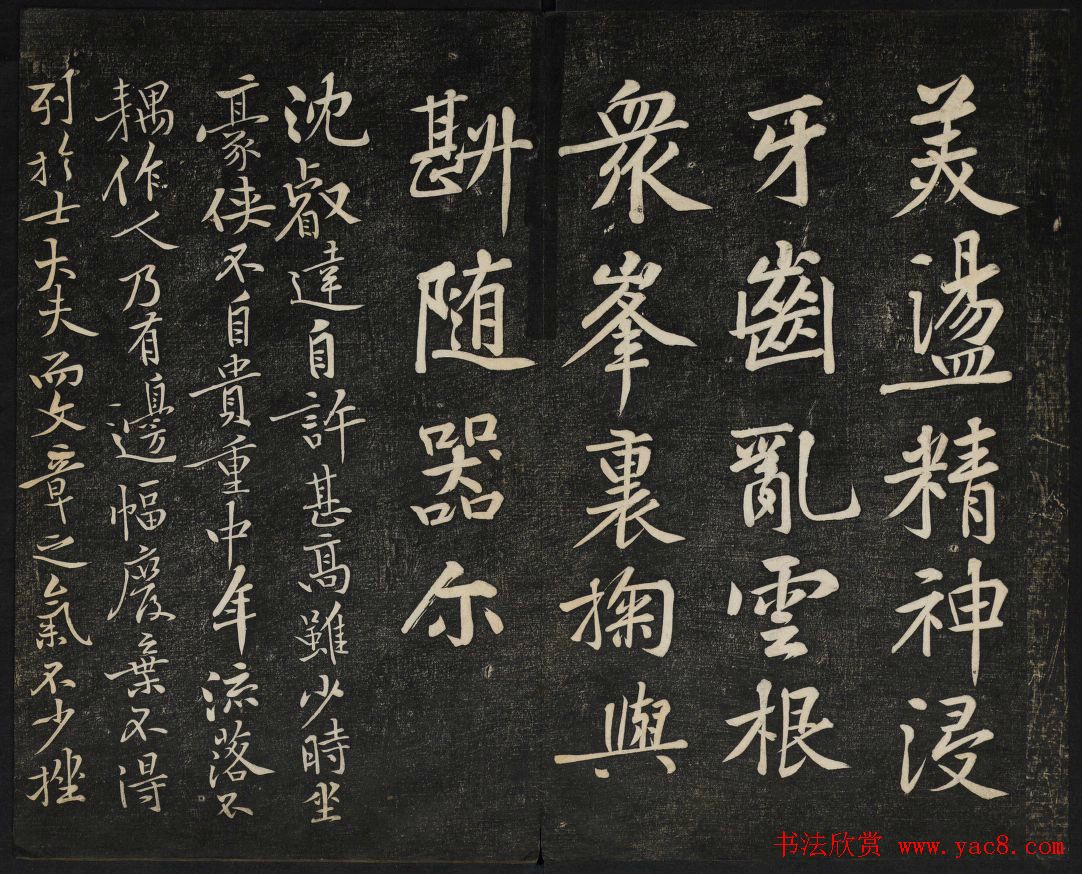 美盪精神浸
牙齒亂雲根
衆峯裏掬與
斟随器尔
沈叡達自許甚高雖少時坐
豪俠不自貴重中年流落不
耦作人乃有邊幅廢棄不得
列於士大夫而文章之氣不少挫
书法欣赏 www.yac8.com